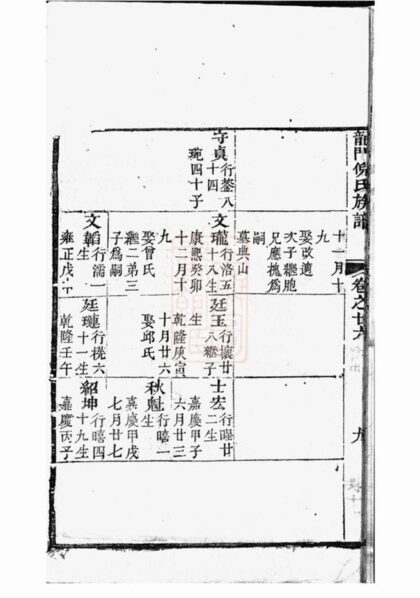 龍門倪氏族譜
卷之廿六
九
十一月十
九
娶改適
次子繼胞
兄應槐爲
嗣
墓典山
守貞行鋆八
十四
琬四十子
文瓏行洛五
十八生
康熙癸卯
十二月十
九
娶曾氏
繼二弟三
子爲嗣
文韜行濡一
雍正戊午
廷玉行欀廿
八繼子
生
乾隆庚寅
十月廿六
娶邱氏
廷璉行桄六
十一生
乾隆壬午
士宏行㬢廿
二生
嘉慶甲子
六月廿三
秋魁行暿一
生
嘉慶甲戌
七月廿七
紹坤行暿四
十九生
嘉慶丙子